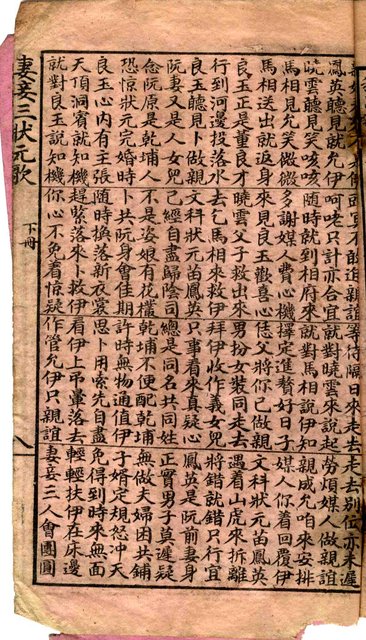 頭宮不的追親誼等待隔日來走去走去別位亦未遲
鳳英聽見就允伊呵咾只計亦合宜就對曉雲來說起勞煩媒人做親誼
曉雲聽見笑咳咳隨時就到相府來就對馬相說伊知親成允咱來安排
馬相見允笑微微多謝媒人費心機擇定進贅好日子媒人你着回覆伊
馬相送出就返身來見良玉歡喜心恁父將你已做親文科狀元苗鳳英
良玉正是董良才曉雲父子救出來男扮女裝同走去遇着山虎來折離
行到河邊投落水去乞馬相來救伊拜伊收作義女兒將錯就錯只行宜
良玉聽見卜做親文科狀元苗鳳英只事看來真疑心鳳英是阮前妻身
阮妻又是人女兒已經自盡歸陰司總是同名共同姓正實男子莫遲疑
念阮原是乾埔人不是姿娘有花欉乾埔不便配乾埔無做夫婦困共鋪
恐驚狀元完婚時卜共阮身會佳期許時無物通值伊子婿定規怒冲天
良玉心內有主張隨時換落新衣裳思卜用索先自盡免得到時來無面
天頂洞賓就知機趕緊落來卜救伊看伊上吊暈落去輕輕扶伊在床邊
就對良玉說知機你心不免着驚疑作管允伊只親誼妻妾三人會團圓
妻妾三狀元歌 下冊 八